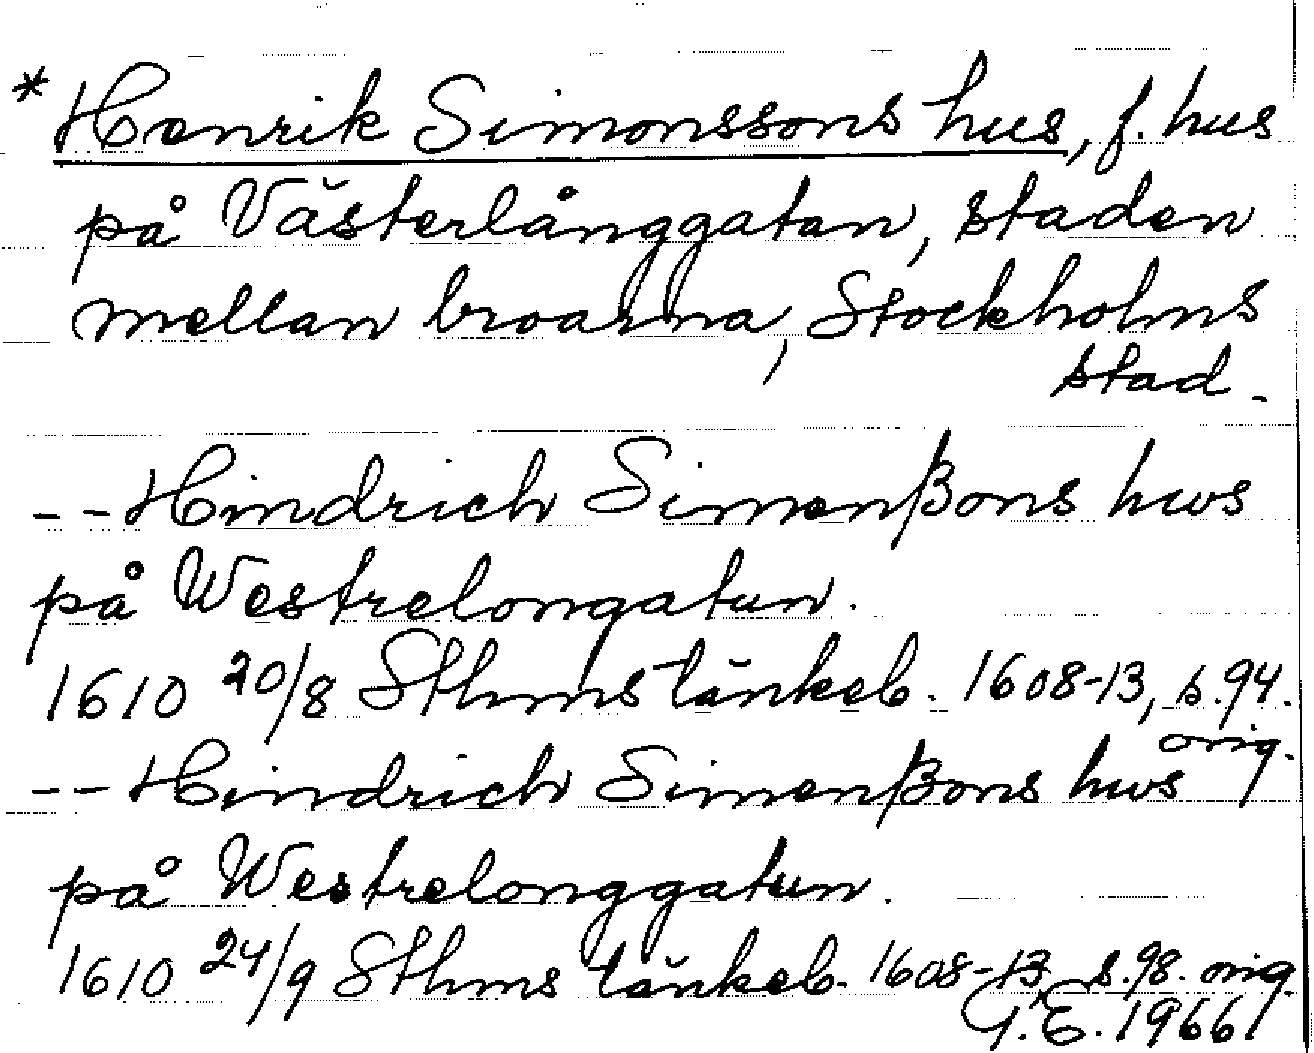 * Henrik Simonssons hus, f. hus
på Västerlånggatan, staden
mellan broarna, Stockholms
stad.
-- Hindrich Simenßons hws
på Westrelongatun.
1610 20/8 Sthms tänkeb. 1608-13, s. 94.
orig.
-- Hindrich Simenßons hws
på Westrelonggatun.
1610 24/9 Sthms tänkeb. 1608-13, s. 98. orig.
G.E. 1966